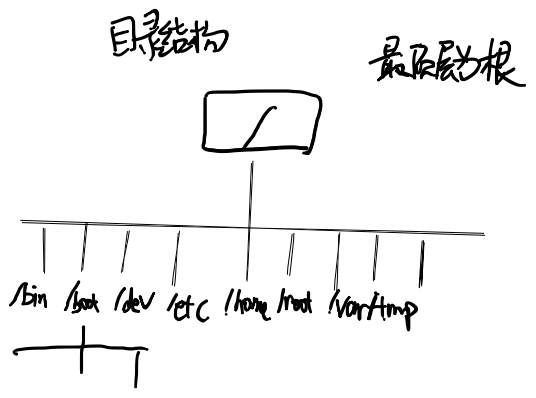 目录结构
最顶层为根
/
/bin /boot /dev /etc /home /root /var /tmp